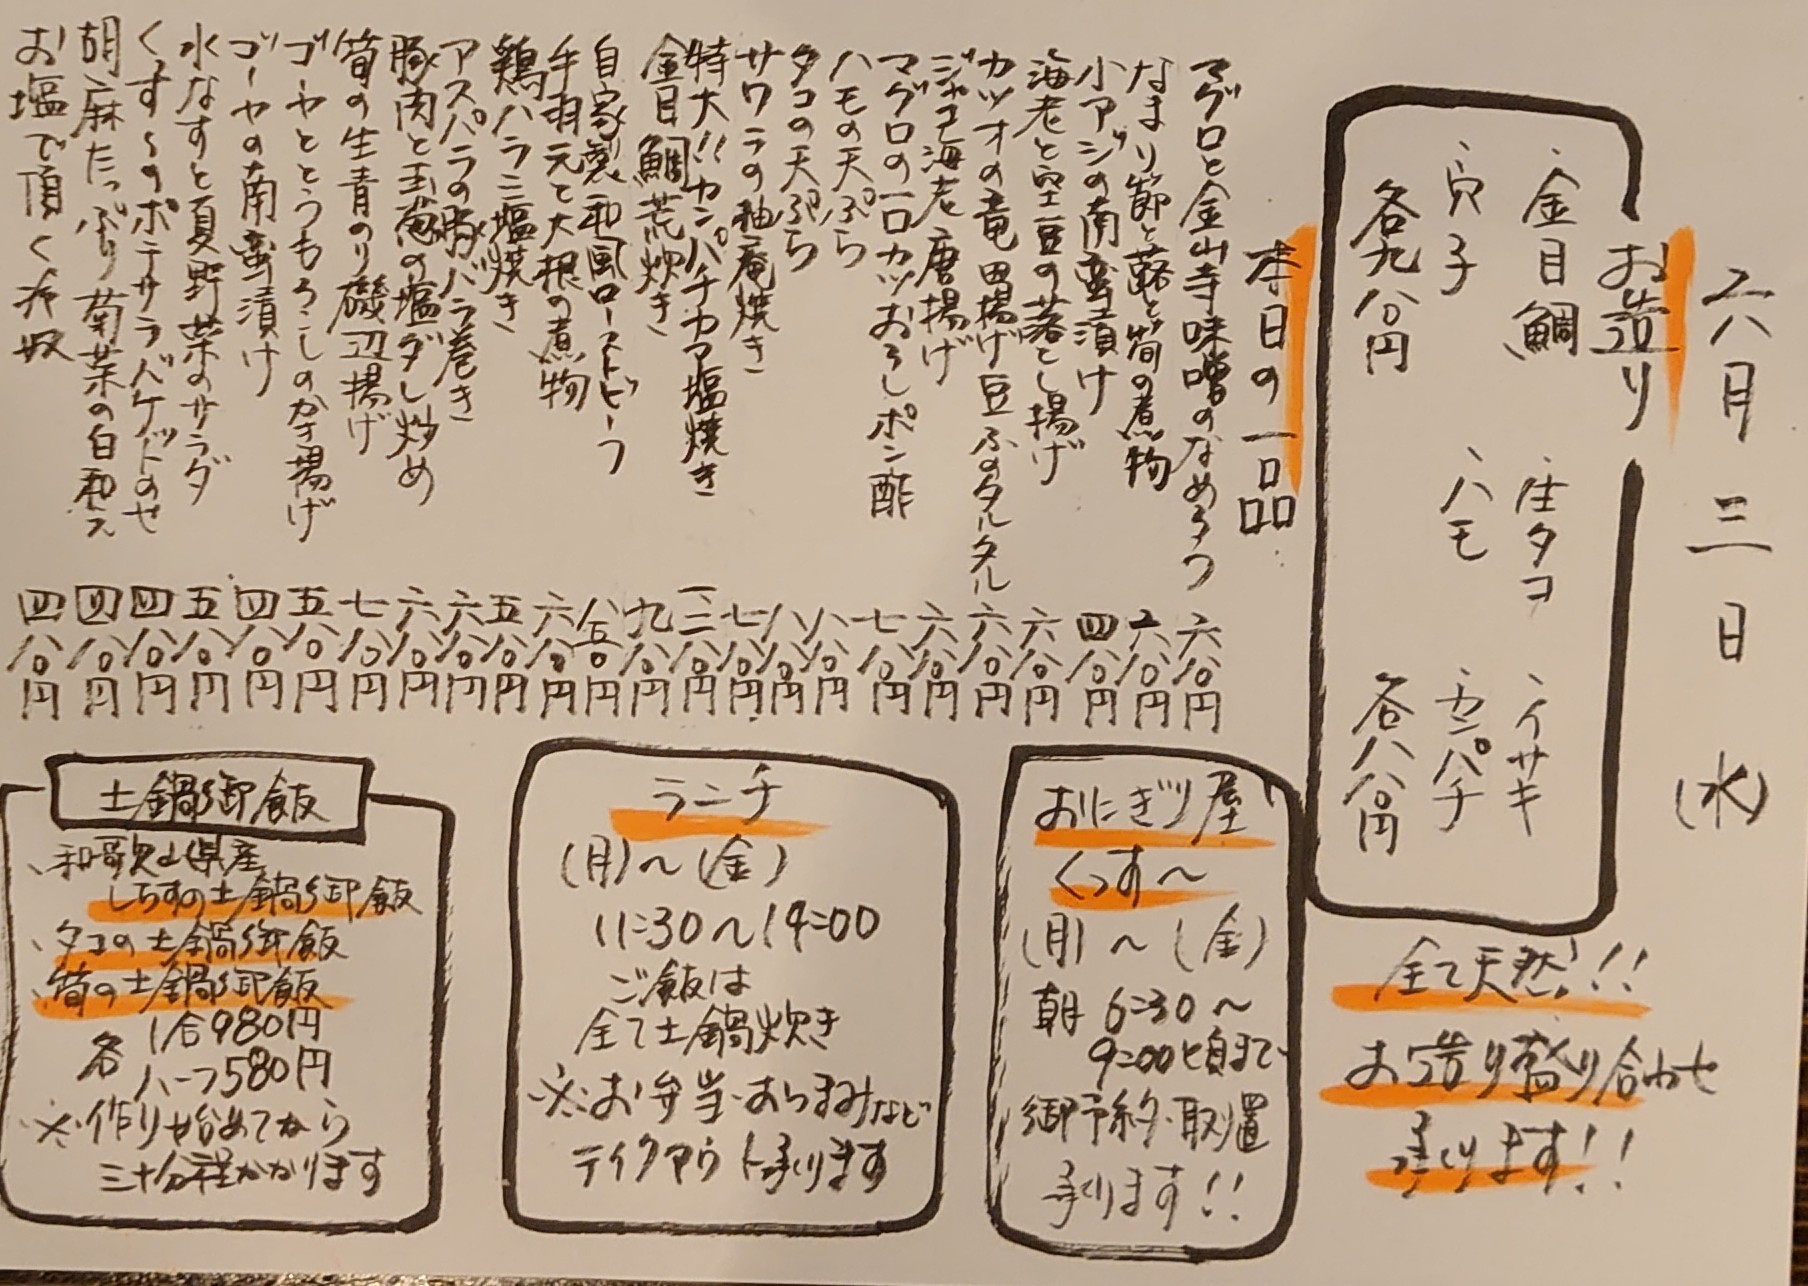 六月三日(水)
お造り
、金目鯛 、庄タコ 、イサキ
、穴子 、ハモ 、カンパチ
各九八〇円 各八八〇円
全て天然!!
お造り盛り合わせ
承ります!!
本日の一品
マグロと金山寺味噌のなめろう 六八〇円
なまり節と蕗と筍の煮物 六八〇円
小アジの南蛮漬け 四八〇円
海老と空豆の落とし揚げ 六八〇円
カツオの竜田揚げ豆ふのタルタル 六八〇円
ジャコ海老唐揚げ 六八〇円
マグロの一口カツおろしポン酢 七八〇円
ハモの天ぷら 八八〇円
タコの天ぷら 八八〇円
サワラの柚庵焼き 七八〇円
特大!!カンパチカマ塩焼き 一三八〇円
金目鯛荒炊き 九八〇円
自家製和風ローストビーフ 八五〇円
手羽元と大根の煮物 六八〇円
鶏ハラミ塩焼き 五八〇円
アスパラの豚バラ巻き 六八〇円
豚肉と玉葱の塩ダレ炒め 六八〇円
筍の生青のり磯辺揚げ 七八〇円
ゴーヤととうもろこしのかき揚げ 五八〇円
ゴーヤの南蛮漬け 四八〇円
水なすと夏野菜のサラダ 五八〇円
くっす〜のポテサラバケットのせ 四八〇円
胡麻たっぷり菊菜の白和え 四八〇円
お塩で頂く冷奴 四八〇円
おにぎり屋
くっす〜
(月)〜(金)
朝6:30〜
9:00頃まで
御予約・取置
承ります!!
ランチ
(月)〜(金)
11:30〜14:00
ご飯は
全て土鍋炊き
※お弁当・おつまみなど
テイクアウト承ります
土鍋御飯
、和歌山県産
しらすの土鍋御飯
、タコの土鍋御飯
、筍の土鍋御飯
各 1合980円
ハーフ580円
※作り始めてから
三十分程かかります